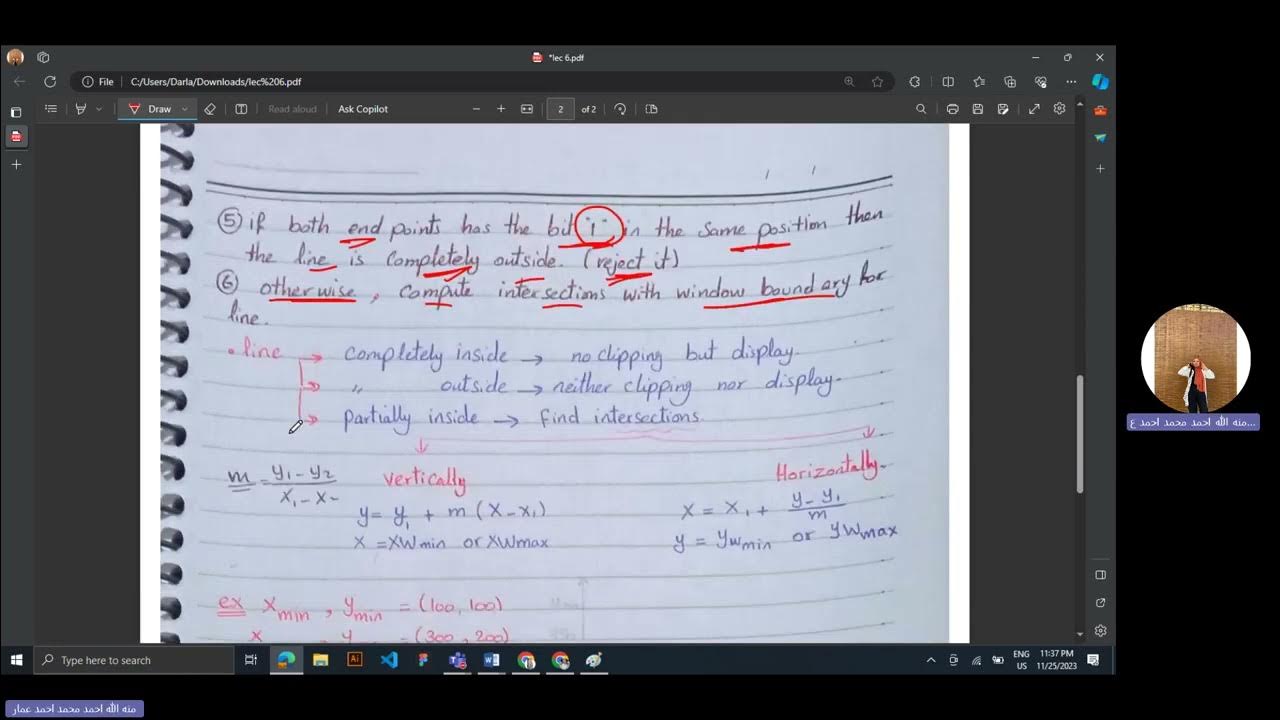 *lec 6.pdf
File C:/Users/Darla/Downloads/lec%206.pdf
Draw Read aloud Ask Copilot 2 of 2
⑤ if both end points has the bit "1" in the same position then
the line is completely outside. (reject it)
⑥ otherwise, compute intersections with window boundary for
line.
• line → completely inside → no clipping but display.
→ " outside → neither clipping nor display.
→ partially inside → find intersections.
vertically Horizontally.
m = y1 - y2
x1 - x
y = y1 + m (x - x1) x = x1 + y - y1
m
x = xwmin or xwmax y = ywmin or ywmax
ex xmin, ymin = (100, 100)
x , y = (300, 200)
منه الله احمد محمد احمد ع...
Type here to search
ENG 11:37 PM
US 11/25/2023
منه الله احمد محمد احمد عمار